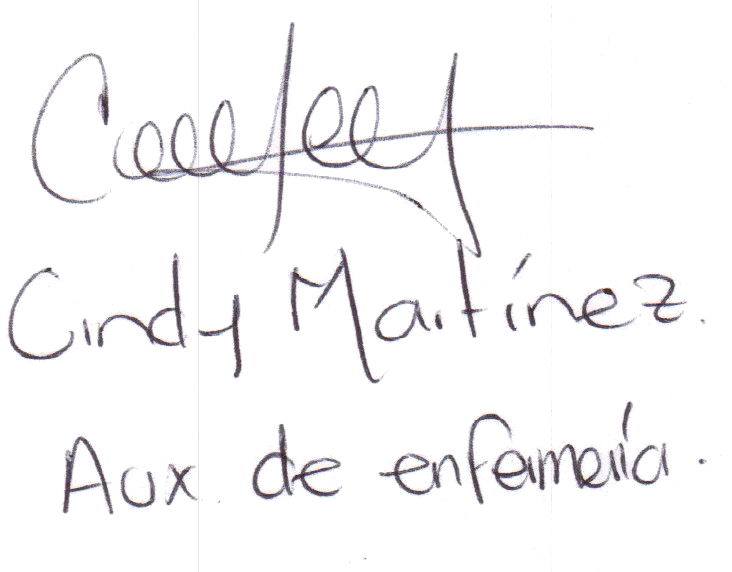 Cindy Martínez.
Aux de enfermería.